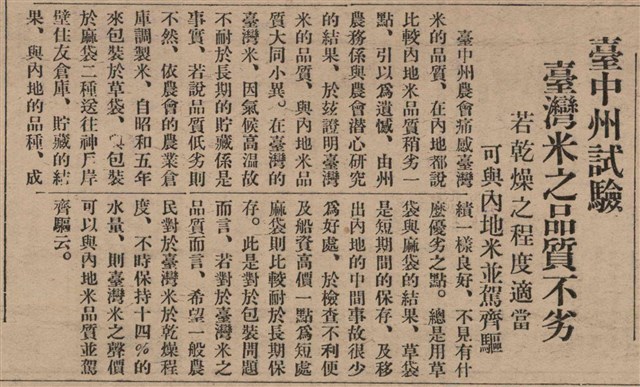 臺中州試驗
臺灣米之品質不劣
若乾燥之程度適當
可與內地米並駕齊驅
臺中州農會痛感臺灣
米的品質、在內地都說
比較內地米品質稍劣一
點、引以爲遺憾、由州
農務係與農會潛心研究
的結果、於玆證明臺灣
米的品質、與內地米品
質大同小異。在臺灣的
臺灣米、因氣候高溫故
不耐於長期的貯藏係是
事實、若說品質低劣則
不然、依農會的農業倉
庫調製米、自昭和五年
來包裝於草袋、包裝
於麻袋二種送往神戶岸
壁住友倉庫、貯藏的結
果、與內地的品種、成
績一樣良好、不見有什
麼優劣之點。總是用草
袋與麻袋的結果、草袋
是短期間的保存、及移
出內地的中間事故很少
爲好處、於檢查不利便
及船資高價一點爲短處
麻袋則比較耐於長期保
存。此是對於包裝問題
而言、若對於臺灣米之
品質而言、希望一般農
民對於臺灣米於乾燥程
度、不時保持十四%的
水量、則臺灣米之聲價
可以與內地米品質並駕
齊驅云。